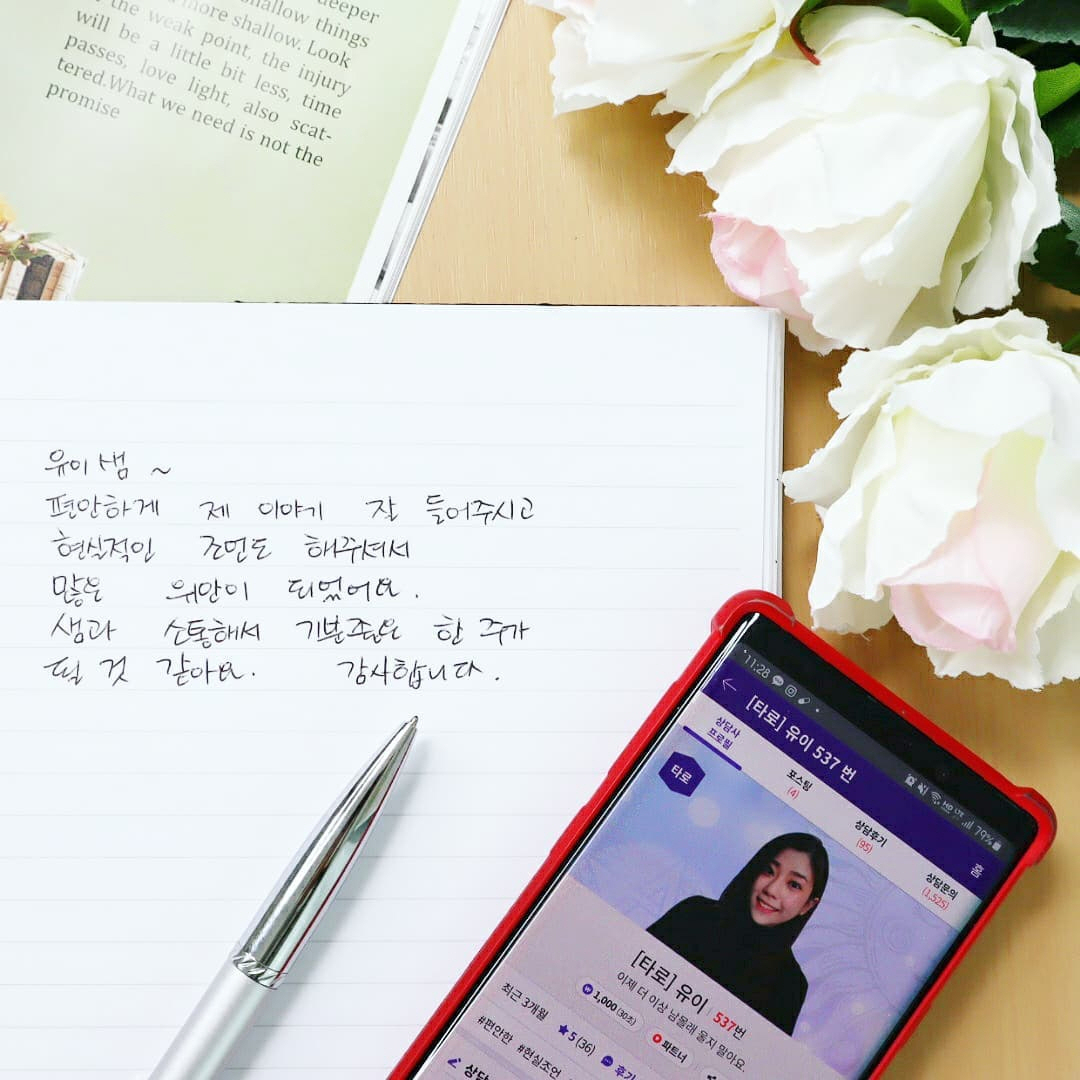 deeper
shallow things
more shallow. Look
the weak point, the injury
will be a little bit less, time
passes, love light, also scat-
tered.What we need is not the
promise
유이 샘 ~
편안하게 제 이야기 잘 들어주시고
현실적인 조언도 해주셔서
많은 위안이 되었어요.
샘과 소통해서 기분좋은 한 주가
될 것 같아요. 감사합니다.
11:28
79%
[타로] 유이 537 번
홈
상담사
프로필
포스팅
(4)
상담후기
(95)
상담문의
(1,525)
타로
[타로] 유이 537번
이제 더 이상 남몰래 울지 말아요.
1,000 (30초)
파트너
최근 3개월 ★5 (36) 후기
#편안한 #현실조언